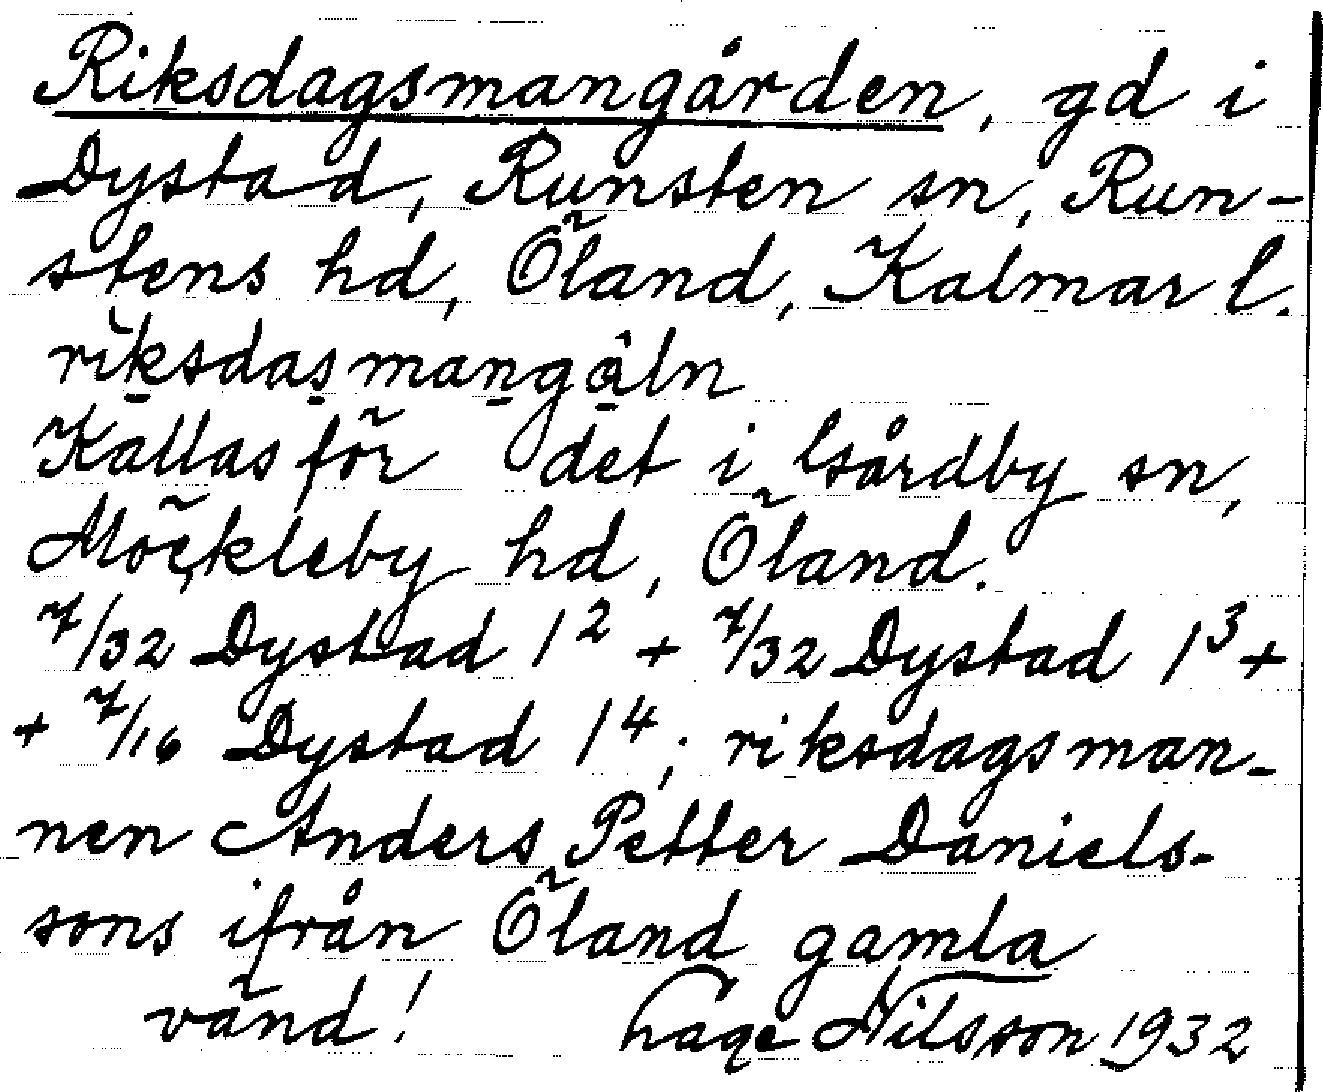 Riksdagsmangården, gd i
Dystad, Runsten sn, Run-
stens hd, Öland, Kalmar l.
riksdasmangåln
Kallas för det i Gårdby sn,
Möckleby hd, Öland.
7/32 Dystad 1² + 7/32 Dystad 1³ +
+ 7/16 Dystad 1⁴; riksdagsman-
nen Anders Petter Daniels-
sons ifrån Öland gamla
vänd! Hage Nilsson 1932